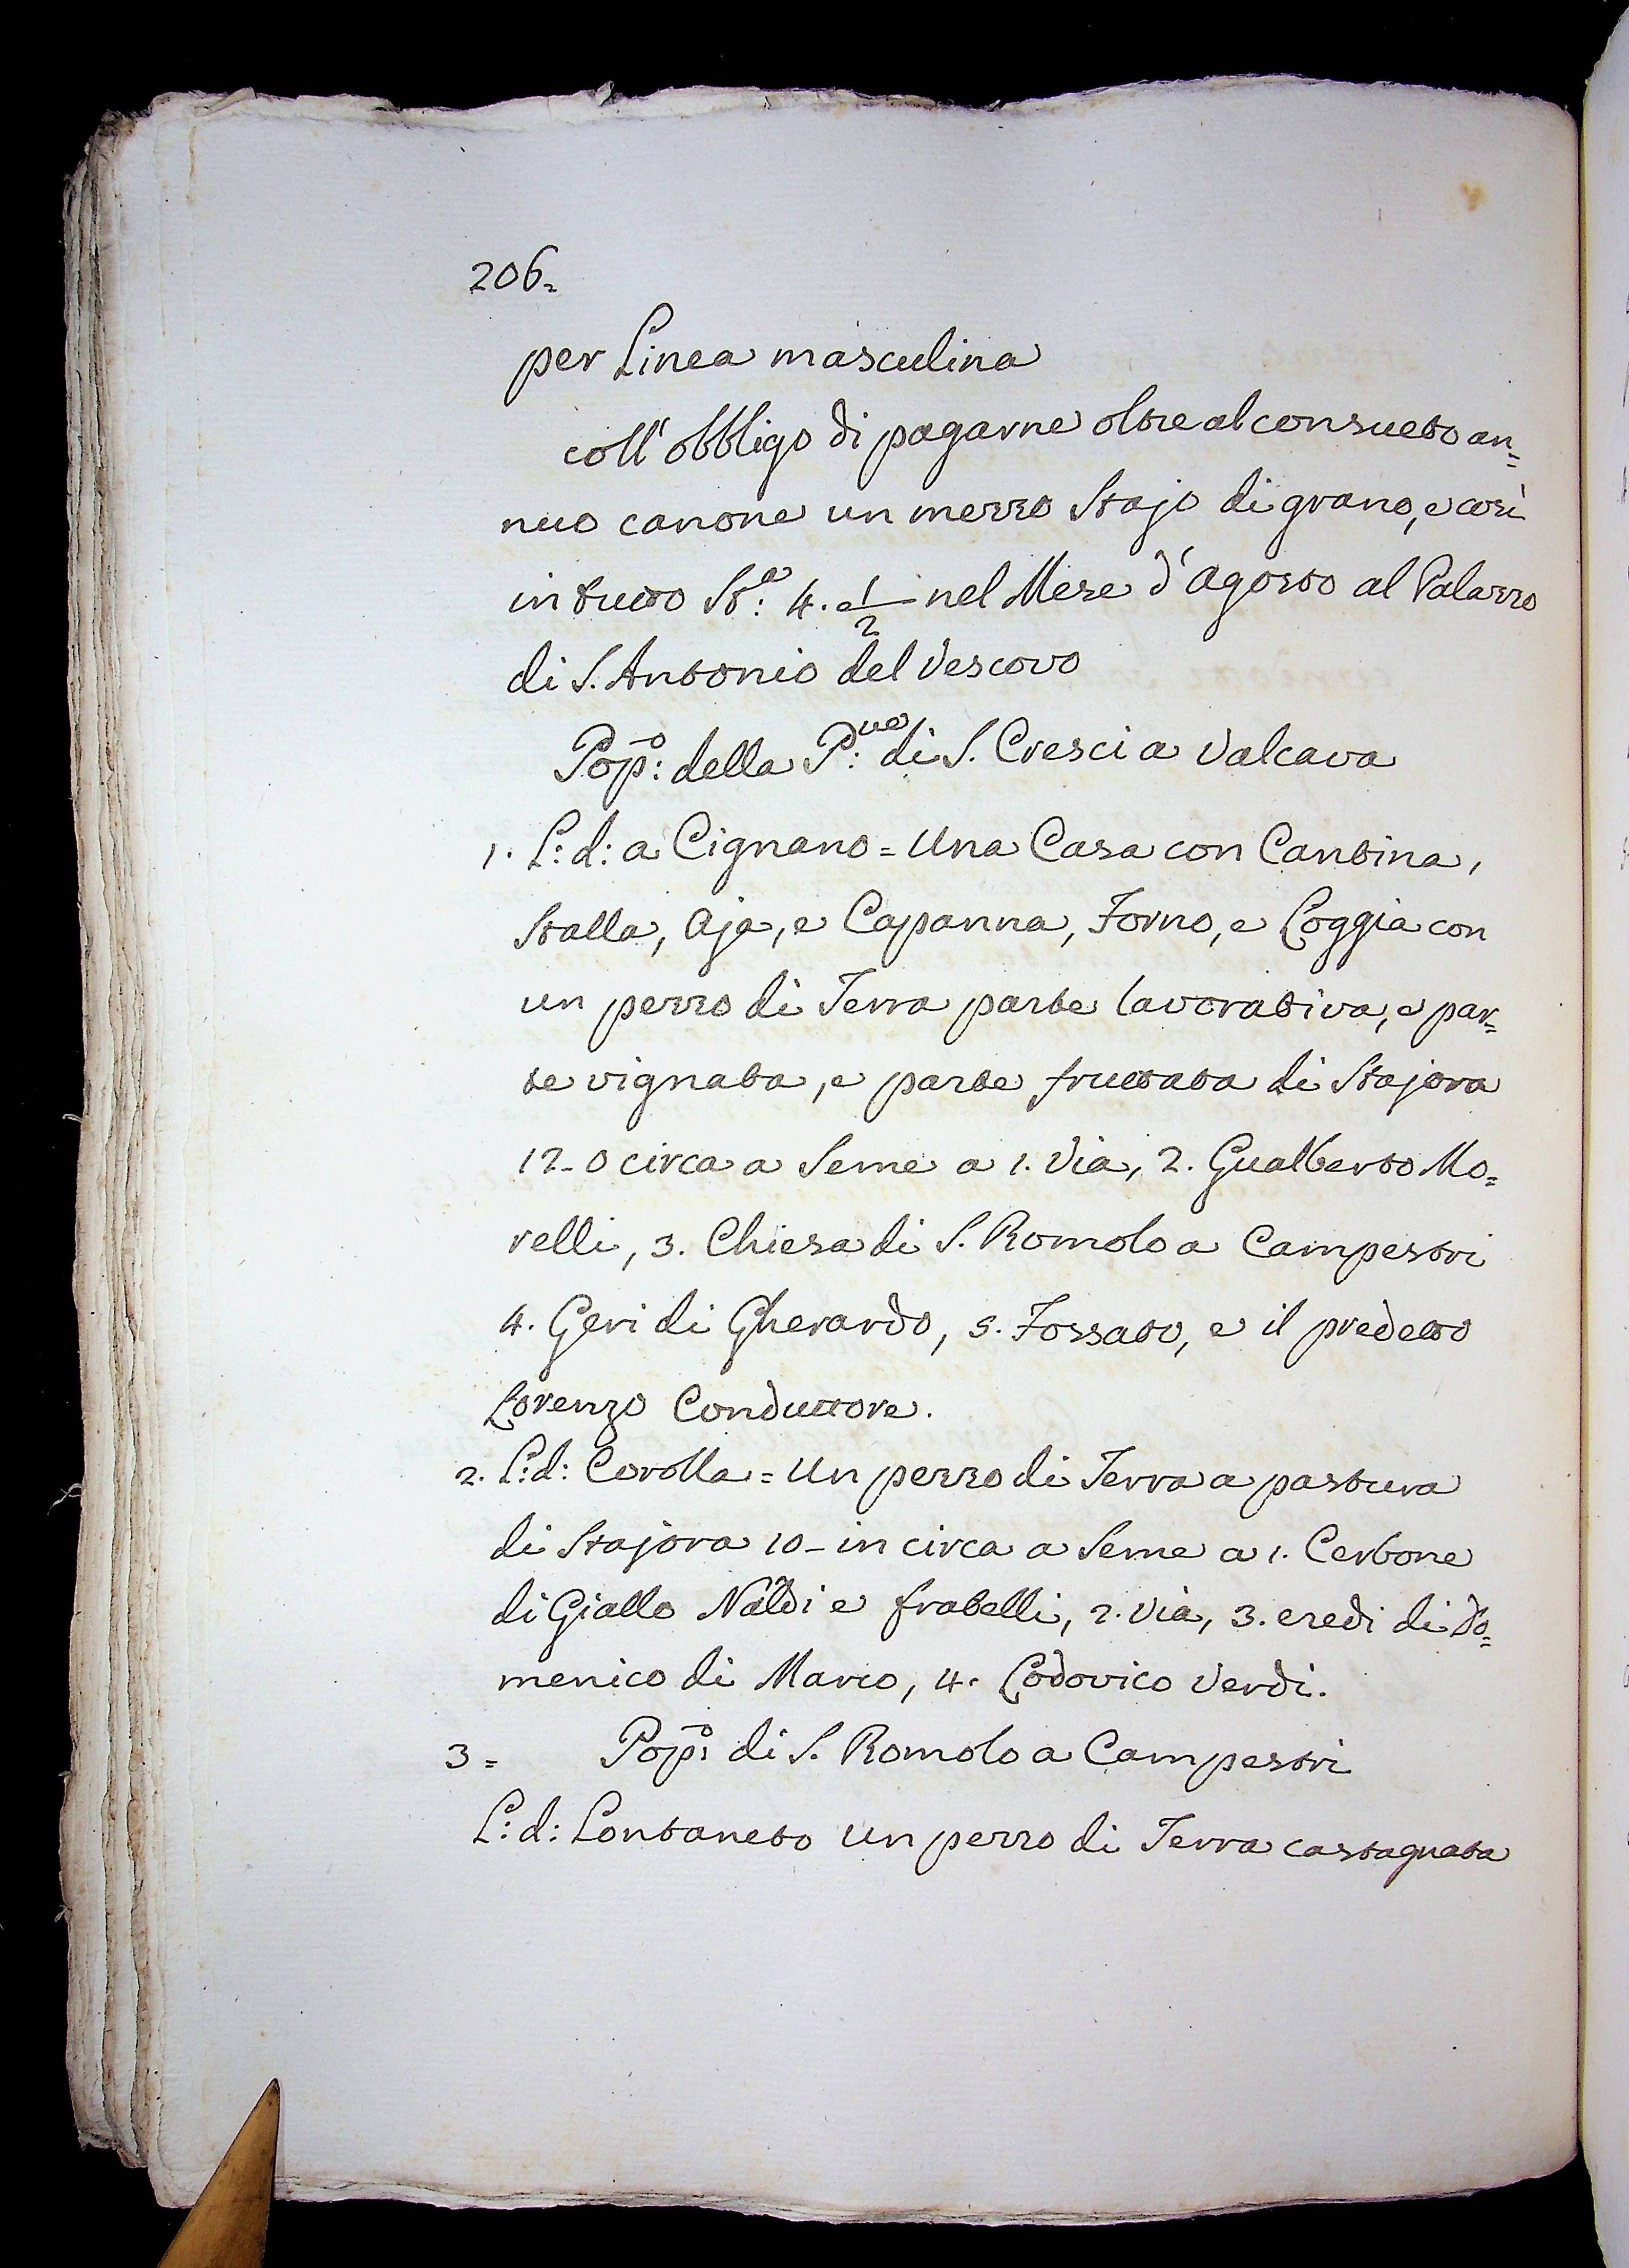 206=
per Linea masculina
coll'obbligo di pagarne oltre al consueto an=
nuo canone un mezzo Stajo di grano, e così
in tutto St:ª 4. e 1/2 nel Mese d'Agosto al Palazzo
di S. Antonio del Vescovo
Pop:º della P:ve di S. Cresci a Valcava
1. L: d: a Cignano = Una Casa con Cantina,
Stalla, Aja, e Capanna, Forno, e Loggia con
un pezzo di Terra parte lavorativa, e par=
te vignata, e parte fruttata di Stajora
12-0 circa a Seme a 1. Via, 2. Gualberto Mo=
relli, 3. Chiesa di S. Romolo a Campestri
4. Geri di Gherardo, 5. Fossato, e il predetto
Lorenzo Conduttore.
2. L: d: Corolla = Un pezzo di Terra a pastura
di Stajora 10- in circa a Seme a 1. Cerbone
di Giallo Naldi e fratelli, 2. Via, 3. eredi di Do=
menico di Marco, 4. Lodovico Verdi.
3= Pop:º di S. Romolo a Campestri
L: d: Lontaneto un pezzo di Terra castagnata